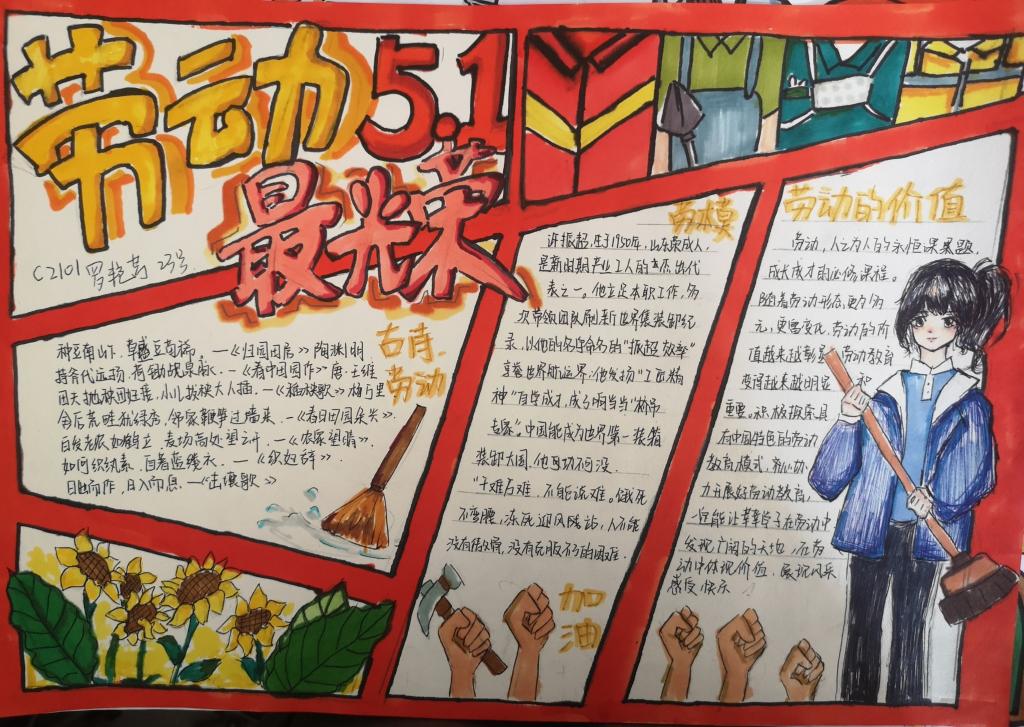 劳动5.1
最光荣
C2101 罗艳 23号
古诗
劳动
种豆南山下，草盛豆苗稀 —《归园田居》陶渊明
持斧伐远扬，荷锄觇泉脉。—《春中田园作》唐·王维
田夫抛秧田妇接，小儿拔秧大人插。—《插秧歌》杨万里
—《春日田园杂兴》
白发老农如鹤立，麦场高处望云开 —《农家望晴》
如何织纨素，自着蓝缕衣。—《织妇辞》
日出而作，日入而息 —《击壤歌》
劳模
许振超，生于1950年，山东荣成人，
是新时期产业工人的杰出代
表之一。他立足本职工作，多
次带领团队刷新世界集装卸纪
录，以他的名字命名的"振超效率"
享誉世界航运界；他发扬"工匠精
神"自学成才，成了响当当"桥吊
专家"。中国能成为世界第一装箱
装卸大国，他再功不可没.
"干难万难，不能说难。饿死
不弯腰，冻死迎风站，人不能
没有傲骨，没有克服不了的困难.
加
油
劳动的价值
劳动，人之为人的永恒课题，
成长成才的必修课程。
随着劳动形态的多
元，更需变化，劳动的价
值越来越彰显，劳动教育
变得越来越明显 和
重要。积极探索具
有中国特色的劳动
教育模式，
力开展好劳动教育，
定能让莘莘学子在劳动中
发现广阔的天地，在劳
动中体现价值，展现风采
感受快乐